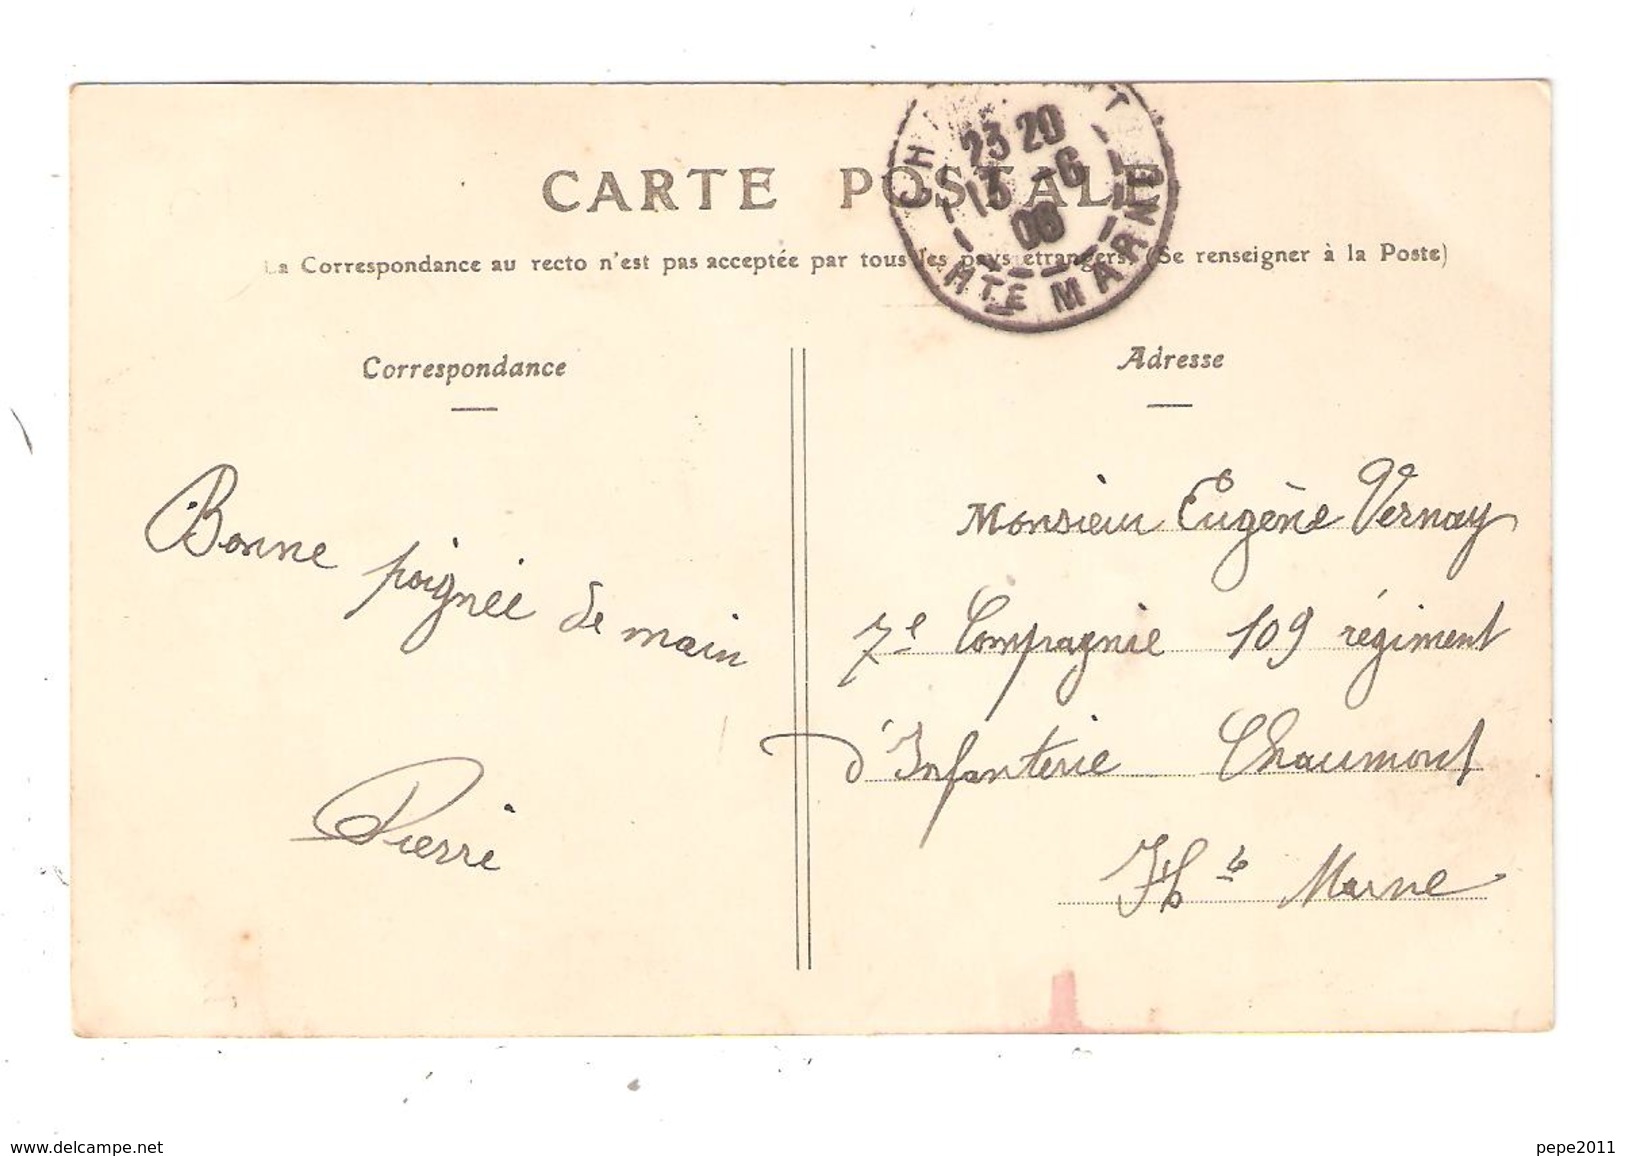 CARTE POSTALE
La Correspondance au recto n'est pas acceptée par tous les pays étrangers. (Se renseigner à la Poste)
23 20
13 -6
HTE MARNE
Correspondance
Adresse
Bonne poignée de main
Pierre
Monsieur Eugène Vernay
7e Compagnie 109 régiment
d'Infanterie Chaumont
Hte Marne
www.delcampe.net
pepe2011